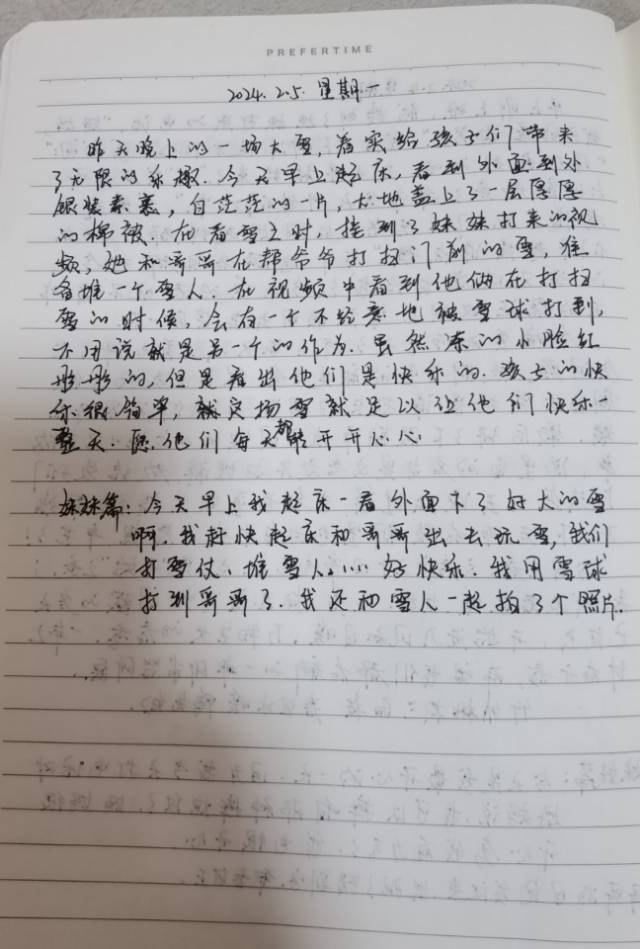 PREFERTIME
2024.2.5. 星期一
昨天晚上的一场大雪，着实给孩子们带来
了无限的乐趣. 今天早上起床，看到外面到外
银装素裹，白茫茫的一片，大地盖上了一层厚厚
的棉被. 在看雪之时，接到了妹妹打来的视
频，她和哥哥在帮爷爷打扫门前的雪，准
备堆一个雪人. 在视频中看到他俩在打扫
雪的时候，会有一个不经意地被雪球打到，
不用说就是另一个的作为. 虽然冻的小脸红
彤彤的，但是看出他们是快乐的. 孩子的快
乐很简单，就这场雪就足以让他们快乐一
整天. 愿他们每天都能开开心心
妹妹篇：今天早上我起床一看外面下了好大的雪
啊. 我赶快起床和哥哥出去玩雪，我们
打雪仗、堆雪人…… 好快乐. 我用雪球
打到哥哥了. 我还和雪人一起拍了个照片.